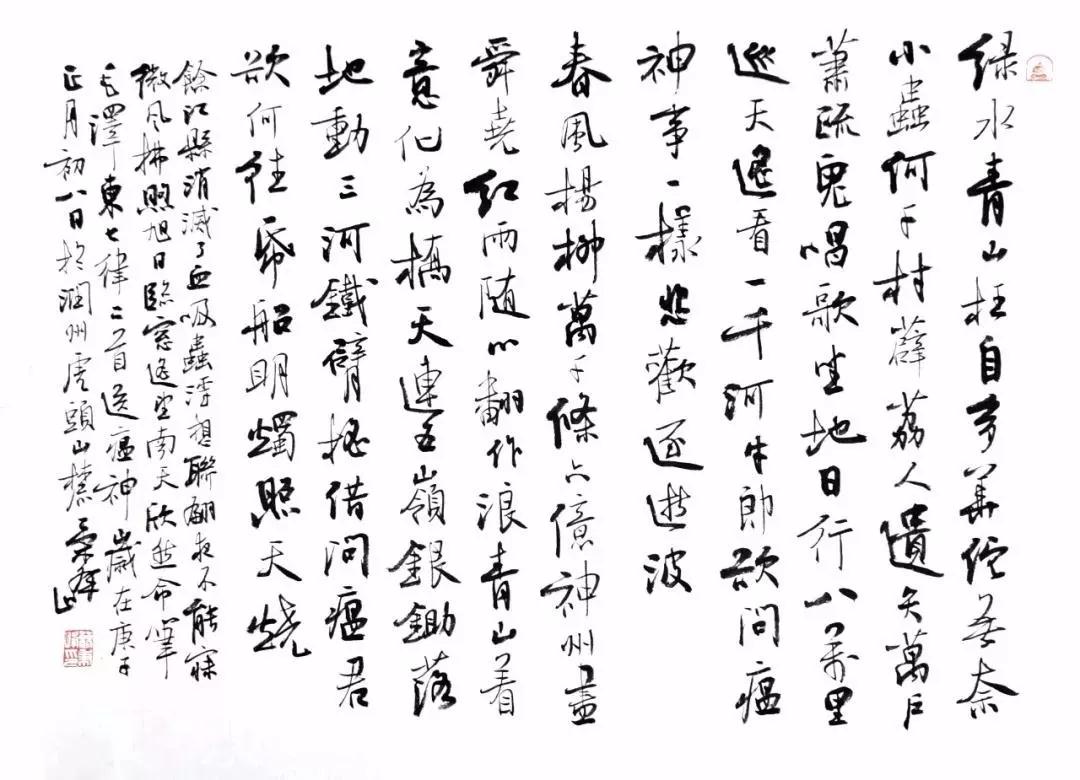 绿水青山枉自多华佗无奈
小蟲何千村薜荔人遺矢萬户
萧疏鬼唱歌坐地日行八万里
巡天遥看一千河牛郎欲问瘟
神事一樣悲歡逐逝波
春風楊柳萬千條六億神州盡
舜堯红雨随心翻作浪青山着
意化為橋天連五嶺銀鋤落
地動三河鐵臂摇借问瘟君
欲何往纸船明燭照天燒
餘江縣消滅了血吸蟲浮想聯翩夜不能寐
微风拂煦旭日臨窓遥望南天欣然命筆
毛澤東七律二首送瘟神 歲在庚子
正月初八日於潤州虎頭山樵